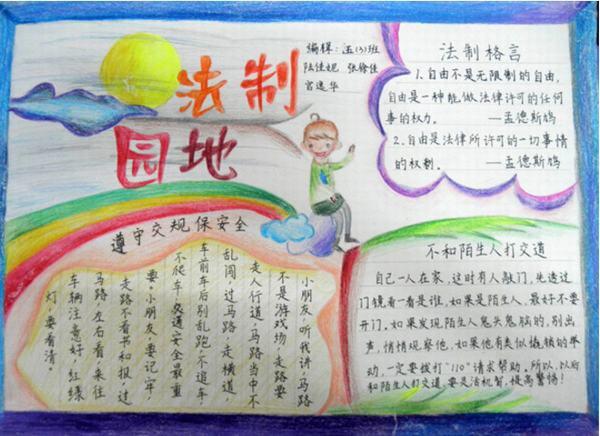 法制
园地
编辑:五(3)班
陆佳妮 张徐佳
宫逸华
法制格言
1.自由不是无限制的自由,
自由是一种能做法律许可的任何
事的权力。 —孟德斯鸠
2.自由是法律所许可的一切事情
的权利。 —孟德斯鸠
遵守交规保安全
小朋友,听我讲,马路
不是游戏场,走路要
走人行道,马路当中不
乱闯,过马路,走横道
车前车后别乱跑,不追车
不爬车,交通安全最重
要,小朋友,要记牢,
走路不看书和报,过
马路左右看,来往
车辆注意好,红绿
灯,要看清。
不和陌生人打交道
自己一人在家,这时有人敲门,先透过
门镜看一看是谁,如果是陌生人,最好不要
开门。如果发现陌生人鬼头鬼脑的,别出
声,悄悄观察他,如果他有类似撬锁的举
动,一定要拨打"110"请求帮助。所以,以后
和陌生人打交道,要灵活机智,提高警惕!